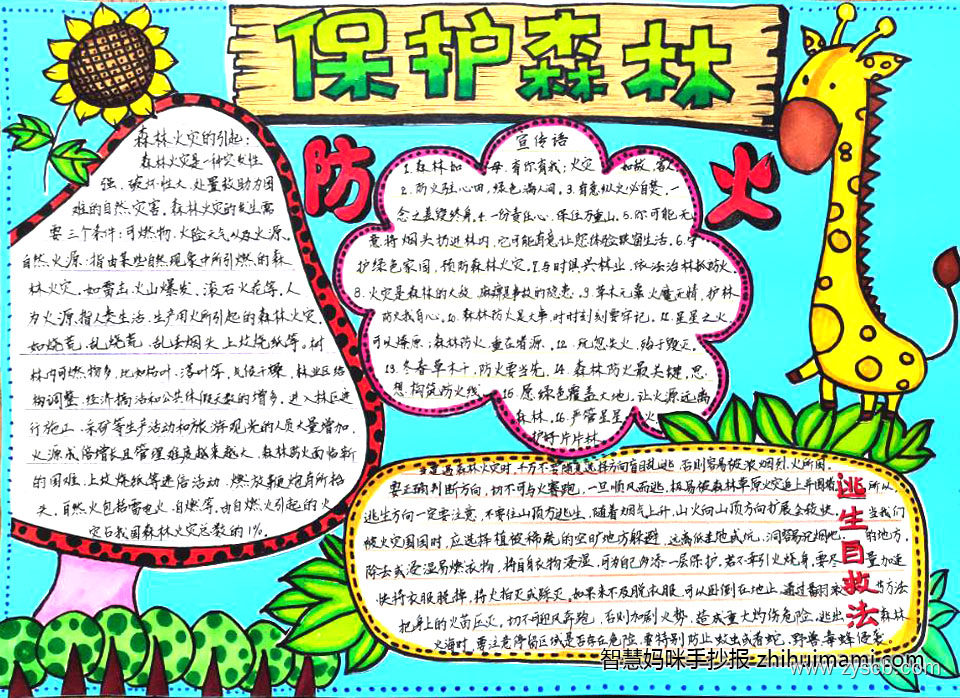 保护森林
防火
森林火灾的引起:
森林火灾是一种突发性
强、破坏性大、处置救助为困
难的自然灾害。森林火灾的发生需
要三个条件:可燃物、火险天气以及火源。
自然火源:指由某些自然现象中所引燃的森
林火灾。如雷击火山爆发、滚石火花等。人
为火源指人类生活、生产用火所引起的森林火灾。
如烧荒、乱烧荒、乱丢烟头、上坟烧纸等。树
林内可燃物多,比如枯叶、落叶等。气候干燥,林业区结
构调整、经济搞活和公共休假天数的增多,进入林区进
行施工、采矿等生产活动和旅游观光的人员大量增加,
火源成倍增长且管理难度越来越大。森林防火面临新
的困难,上坟烧纸等迷信活动、燃放鞭炮有所抬
头。自然火包括雷电火、自燃等。由自燃火引起的火
灾占我国森林火灾总数的1%。
宣传语
1.森林如 母,有你有我;火灾 如敌,害
2.防火驻心田,绿色满人间。3.有意纵火必自焚,一
念之差毁终身。4.一份责任心,保住万重山。5.你可能无
意将烟头扔进林内,它可能有意让您体验铁窗生活。6.守
护绿色家园,预防森林火灾。7.与时俱兴林业,依法治林抓防火
8.火灾是森林的大敌,麻痹是事故的隐患。9.草木无辜火魔无情,护林
防火我自心。10.森林防火是大事,时时刻刻要牢记。11.星星之火
可以燎原;森林防火,重在有源。12.死忽失火,殆于毁灭。
13.冬春草木干,防火要当先。14.森林防火最关键,思
想构筑防火线。15.愿绿色覆盖大地,让火源远离
森林。16.严管星星 火
护好片片林
逃生自救法
遭遇森林火灾时,千万不要随意选择方向盲目乱逃,否则容易被浓烟烈火所困。
要正确判断方向,切不可与火赛跑,一旦顺风而逃,极易被森林草原火追上并围着 所以,
逃生方向一定要注意,不要往山顶方逃生,随着烟气上升,山火向山顶方向扩展会很快。当我们
被火灾围困时,应选择植被稀疏的空旷地方躲避,远离低洼地或坑、洞容易沉烟 的地方,
除去或浸湿易燃衣物,将自身衣物浸湿,可为自己身添一层保护,若不幸引火烧身,要尽 量加速
快将衣服脱掉,将火拍灭或踩灭。如果来不及脱衣服,可以卧倒在地上,通过翻滚 方法
把身上的火苗压灭。切不可迎风奔跑,否则加剧火势,造成重大灼伤危险。逃出 森林
火海时,要注意停留区域是否存在危险,要特别防止蚊虫或者蛇、野兽毒蜂侵袭。
智慧妈咪手抄报-zhihuimami.com
www.zyscb.com